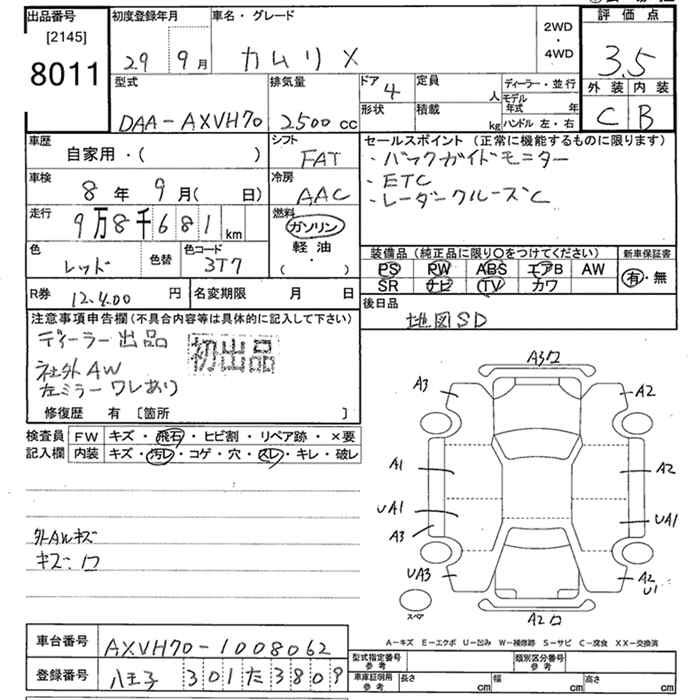 出品番号
[2145]
8011
初度登録年月
29 9月
車名・グレード
カムリ X
2WD
・
4WD
評価点
3.5
外装 内装
C B
型式
DAA-AXVH70
排気量
2500 cc
ドア
4
形状
定員
人
積載
kg
ディーラー・並行
モデル年式 年
ハンドル 左・右
車歴
自家用・( )
シフト
FAT
セールスポイント (正常に機能するものに限ります)
・バックガイドモニター
・ETC
・レーダークルーズC
車検
8年 9月( 日)
冷房
AAC
走行
9万8千681km
燃料
ガソリン
軽油
( ・ )
色
レッド
色替
色コード
3T7
装備品 (純正品に限り〇をつけてください)
PS PW ABS エアB AW
SR ナビ TV カワ
新車保証書
有・無
R券 12,400 円
名変期限 月 日
後日品
地図SD
注意事項申告欄 (不具合内容等は具体的に記入して下さい)
ディーラー出品
初出品
社外AW
左ミラーワレあり
修復歴 有 [箇所 ]
検査員記入欄
FW キズ・飛石・ヒビ割・リペア跡・×要
内装 キズ・汚レ・コゲ・穴・スレ・キレ・破レ
外AWキズ
キズ:ロ
A3ロ
A3
A2
A1
A2
UA1
UA1
A3
UA3
A2
U1
スペア
A2ロ
A-キズ E-エクボ U-凹み W-補修跡 S-サビ C-腐食 XX-交換済
車台番号 AXVH70-1008062
登録番号 八王子 301 た 3809
型式指定番号 参考
類別区分番号 参考
車庫証明用 参考
長さ cm
幅 cm
高さ cm